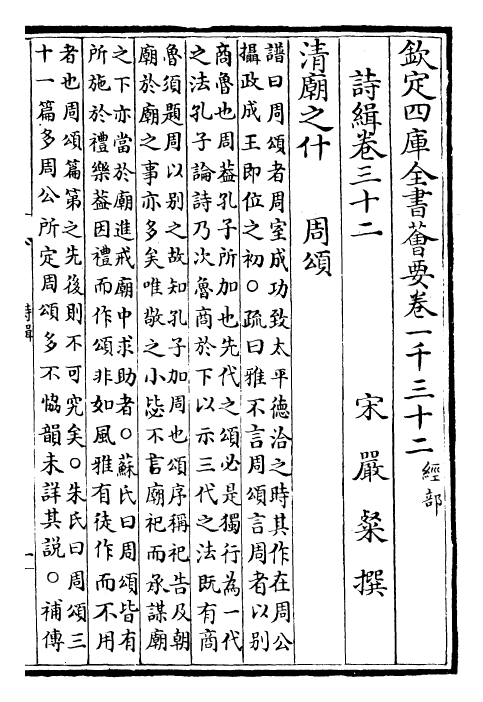 欽定四庫全書薈要卷一千三十二 經部
詩緝卷三十二 宋 嚴粲 撰
清廟之什 周頌
譜曰周頌者周室成功致太平德洽之時其作在周公
攝政成王即位之初○疏曰雅不言周頌言周者以別
商魯也周葢孔子所加也先代之頌必是獨行為一代
之法孔子論詩乃次魯商於下以示三代之法既有商
魯須題周以别之故知孔子加周也頌序稱祀告及朝
廟於廟之事亦多矣唯敬之小毖不言廟祀而承謀廟
之下亦當於廟進戒廟中求助者○蘇氏曰周頌皆有
所施於禮樂葢因禮而作頌非如風雅有徒作而不用
者也周頌篇第之先後則不可究矣○朱氏曰周頌三
十一篇多周公所定周頌多不恊韻未詳其說○補傳
詩緝
一